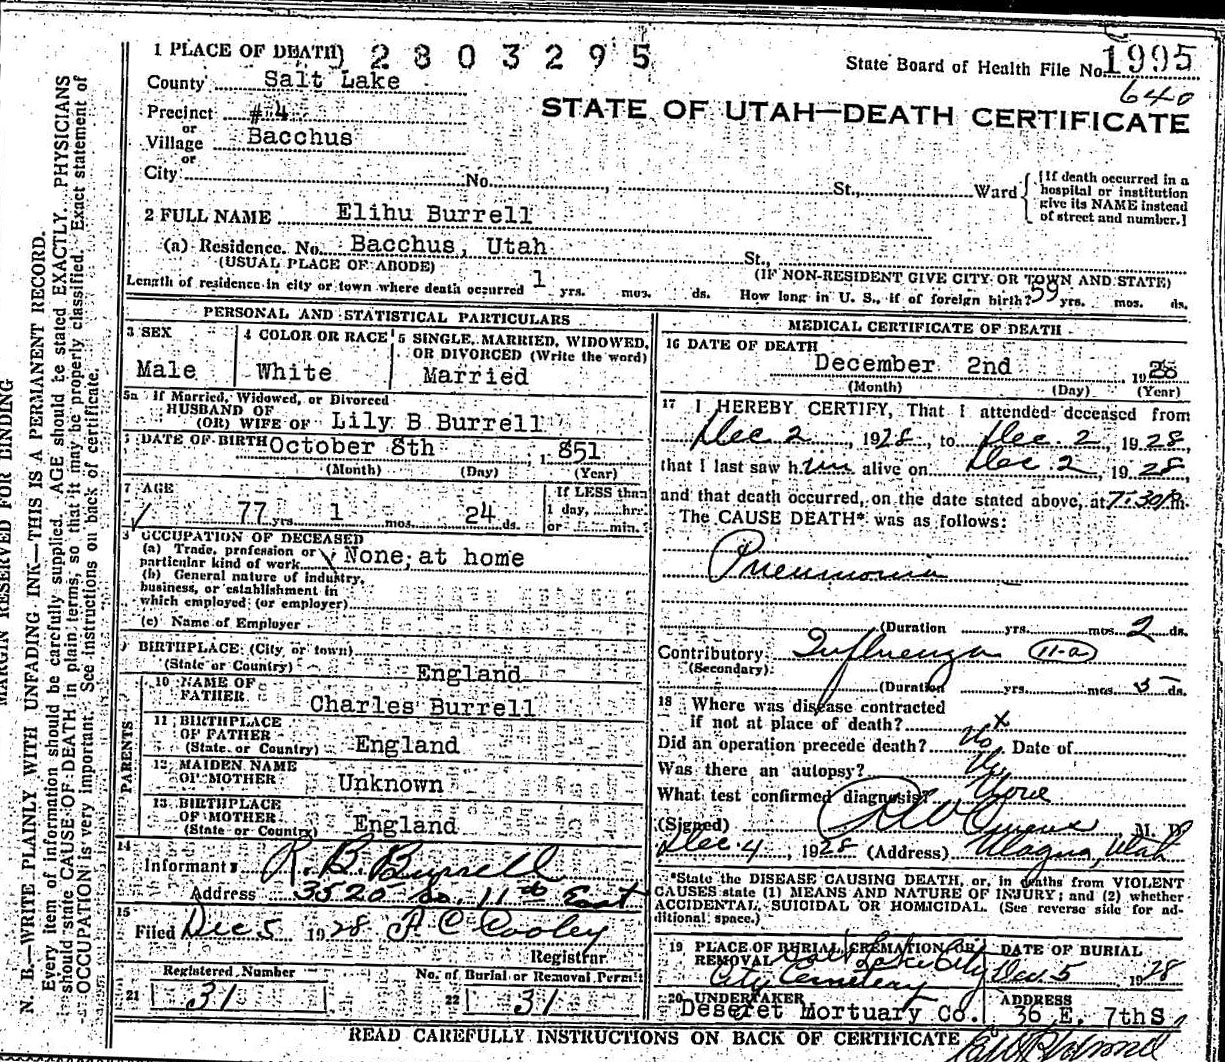 1 PLACE OF DEATH 2 8 0 3 2 9 5
State Board of Health File No. 1995
640
County Salt Lake
Precinct #4
STATE OF UTAH—DEATH CERTIFICATE
or
Village Bacchus
or
City No. St., Ward
[If death occurred in a hospital or institution give its NAME instead of street and number.]
2 FULL NAME Elihu Burrell
(a) Residence. No. Bacchus, Utah St.,
(USUAL PLACE OF ABODE) (IF NON-RESIDENT GIVE CITY OR TOWN AND STATE)
Length of residence in city or town where death occurred 1 yrs. mos. ds. How long in U. S., if of foreign birth? 59 yrs. mos. ds.
PERSONAL AND STATISTICAL PARTICULARS
3 SEX
Male
4 COLOR OR RACE
White
5 SINGLE, MARRIED, WIDOWED,
OR DIVORCED (Write the word)
Married
5a If Married, Widowed, or Divorced
HUSBAND OF
(OR) WIFE OF Lily B Burrell
DATE OF BIRTH October 8th, 1851
(Month) (Day) (Year)
7 AGE
77 yrs. 1 mos. 24 ds.
If LESS than
1 day, hrs.
or min.
OCCUPATION OF DECEASED
(a) Trade, profession or
particular kind of work None, at home
(b) General nature of industry,
business, or establishment in
which employed (or employer)
(c) Name of Employer
BIRTHPLACE (City, or town)
(State or Country) England
PARENTS
10 NAME OF
FATHER Charles Burrell
11 BIRTHPLACE
OF FATHER
(State or Country) England
12 MAIDEN NAME
OF MOTHER Unknown
13 BIRTHPLACE
OF MOTHER
(State or Country) England
14
Informant R. B. Burrell
Address 3525 So. 11th East
15
Filed Dec 5 1928 P. C. Cooley
Registrar
Registered Number
21 31
No. of Burial or Removal Permit
22 31
MEDICAL CERTIFICATE OF DEATH
16 DATE OF DEATH
December 2nd 1928
(Month) (Day) (Year)
17 I HEREBY CERTIFY, That I attended deceased from
Dec. 2, 1928, to Dec. 2, 1928,
that I last saw him alive on Dec 2, 1928,
and that death occurred, on the date stated above, at 7-30 P.m.
The CAUSE DEATH* was as follows:
Pneumonia
(Duration yrs. mos. 2 ds.
Contributory Influenza 11-a
(Secondary)
(Duration yrs. mos. 5 ds.
18 Where was disease contracted
if not at place of death? x
Did an operation precede death? No Date of
Was there an autopsy? No
What test confirmed diagnosis? None
(Signed) M. D
Dec 4, 1928 (Address) Magna, Utah
*State the DISEASE CAUSING DEATH, or, in deaths from VIOLENT
CAUSES state (1) MEANS AND NATURE OF INJURY; and (2) whether
ACCIDENTAL, SUICIDAL OR HOMICIDAL. (See reverse side for ad-
ditional space.)
19 PLACE OF BURIAL, CREMATION OR
REMOVAL Salt Lake City
City Cemetery
DATE OF BURIAL
Dec. 5 1928
20 UNDERTAKER
Deseret Mortuary Co.
ADDRESS
36 E. 7th S
READ CAREFULLY INSTRUCTIONS ON BACK OF CERTIFICATE
MARGIN RESERVED FOR BINDING
N. B.—WRITE PLAINLY WITH UNFADING INK—THIS IS A PERMANENT RECORD.
Every item of information should be carefully supplied. AGE should be stated EXACTLY. PHYSICIANS
should state CAUSE OF DEATH in plain terms, so that it may be properly classified. Exact statement of
OCCUPATION is very important. See instructions on back of certificate.